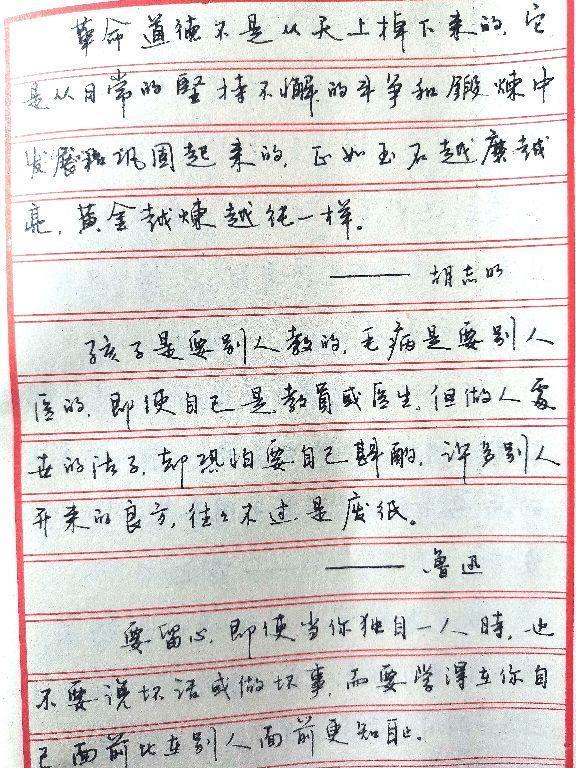 革命道德不是从天上掉下来的，它
是从日常的坚持不懈的斗争和锻炼中
发展和巩固起来的，正如玉石越磨越
亮，黄金越炼越纯一样。
——胡志明
孩子是要别人教的，毛病是要别人
医的，即使自己是教員或医生。但做人處
世的法子，却恐怕要自己斟酌，许多别人
开来的良方，往々不过是废纸。
——鲁迅
要留心，即使当你独自一人時，也
不要说坏话或做坏事，而要学得在你自
己面前比在别人面前更知耻。